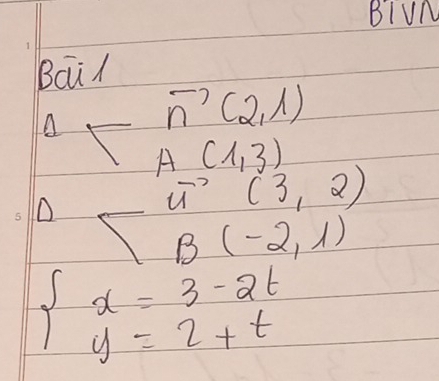 BTVN
Bài 1
Δ n⃗ (2,1)
A (1,3)
Δ u⃗ (3, 2)
B (-2, 1)
{ x = 3 - 2t
y = 2 + t